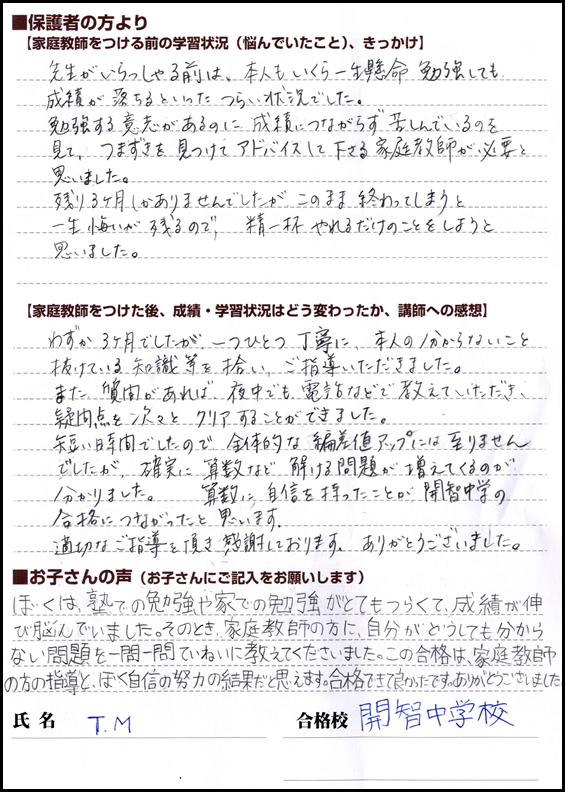 ■保護者の方より
【家庭教師をつける前の学習状況（悩んでいたこと）、きっかけ】
先生がいらっしゃる前は、本人もいくら一生懸命 勉強しても
成績が落ちるといった つらい状況でした。
勉強する意志があるのに 成績につながらず 苦しんでいるのを
見て、つまずきを見つけて アドバイスして下さる 家庭教師が必要と
思いました。
残り3ヶ月しかありませんでしたが、このまま 終わってしまうと
一生 悔いが残るので、 精一杯 やれるだけのことをしようと
思いました。
【家庭教師をつけた後、成績・学習状況はどう変わったか、講師への感想】
わずか 3ヶ月でしたが、一つひとつ 丁寧に、本人の分からないこと
抜けている 知識等を 拾い、ご指導いただきました。
また 質問があれば、夜中でも 電話などで 教えていただき、
疑問点を 次々と クリアすることができました。
短い時間でしたので 全体的な 偏差値アップには至りません
でしたが、確実に 算数など 解ける問題が 増えてくるのが
分かりました。 算数に自信を持ったことが 開智中学の
合格につながったと思います。
適切なご指導を頂き 感謝しております。ありがとうございました。
■お子さんの声（お子さんにご記入をお願いします）
ぼくは、塾での勉強や家での勉強がとてもつらくて、成績が伸
び脳んでいました。そのとき、家庭教師の方に、自分がどうしても分から
ない問題を一問一問ていねいに教えてくださいました。この合格は、家庭教師
の方の指導と、ぼく自信の努力の結果だと思えます。合格できて良かたです。ありがとうございました
氏名 T.M 合格校 開智中学校